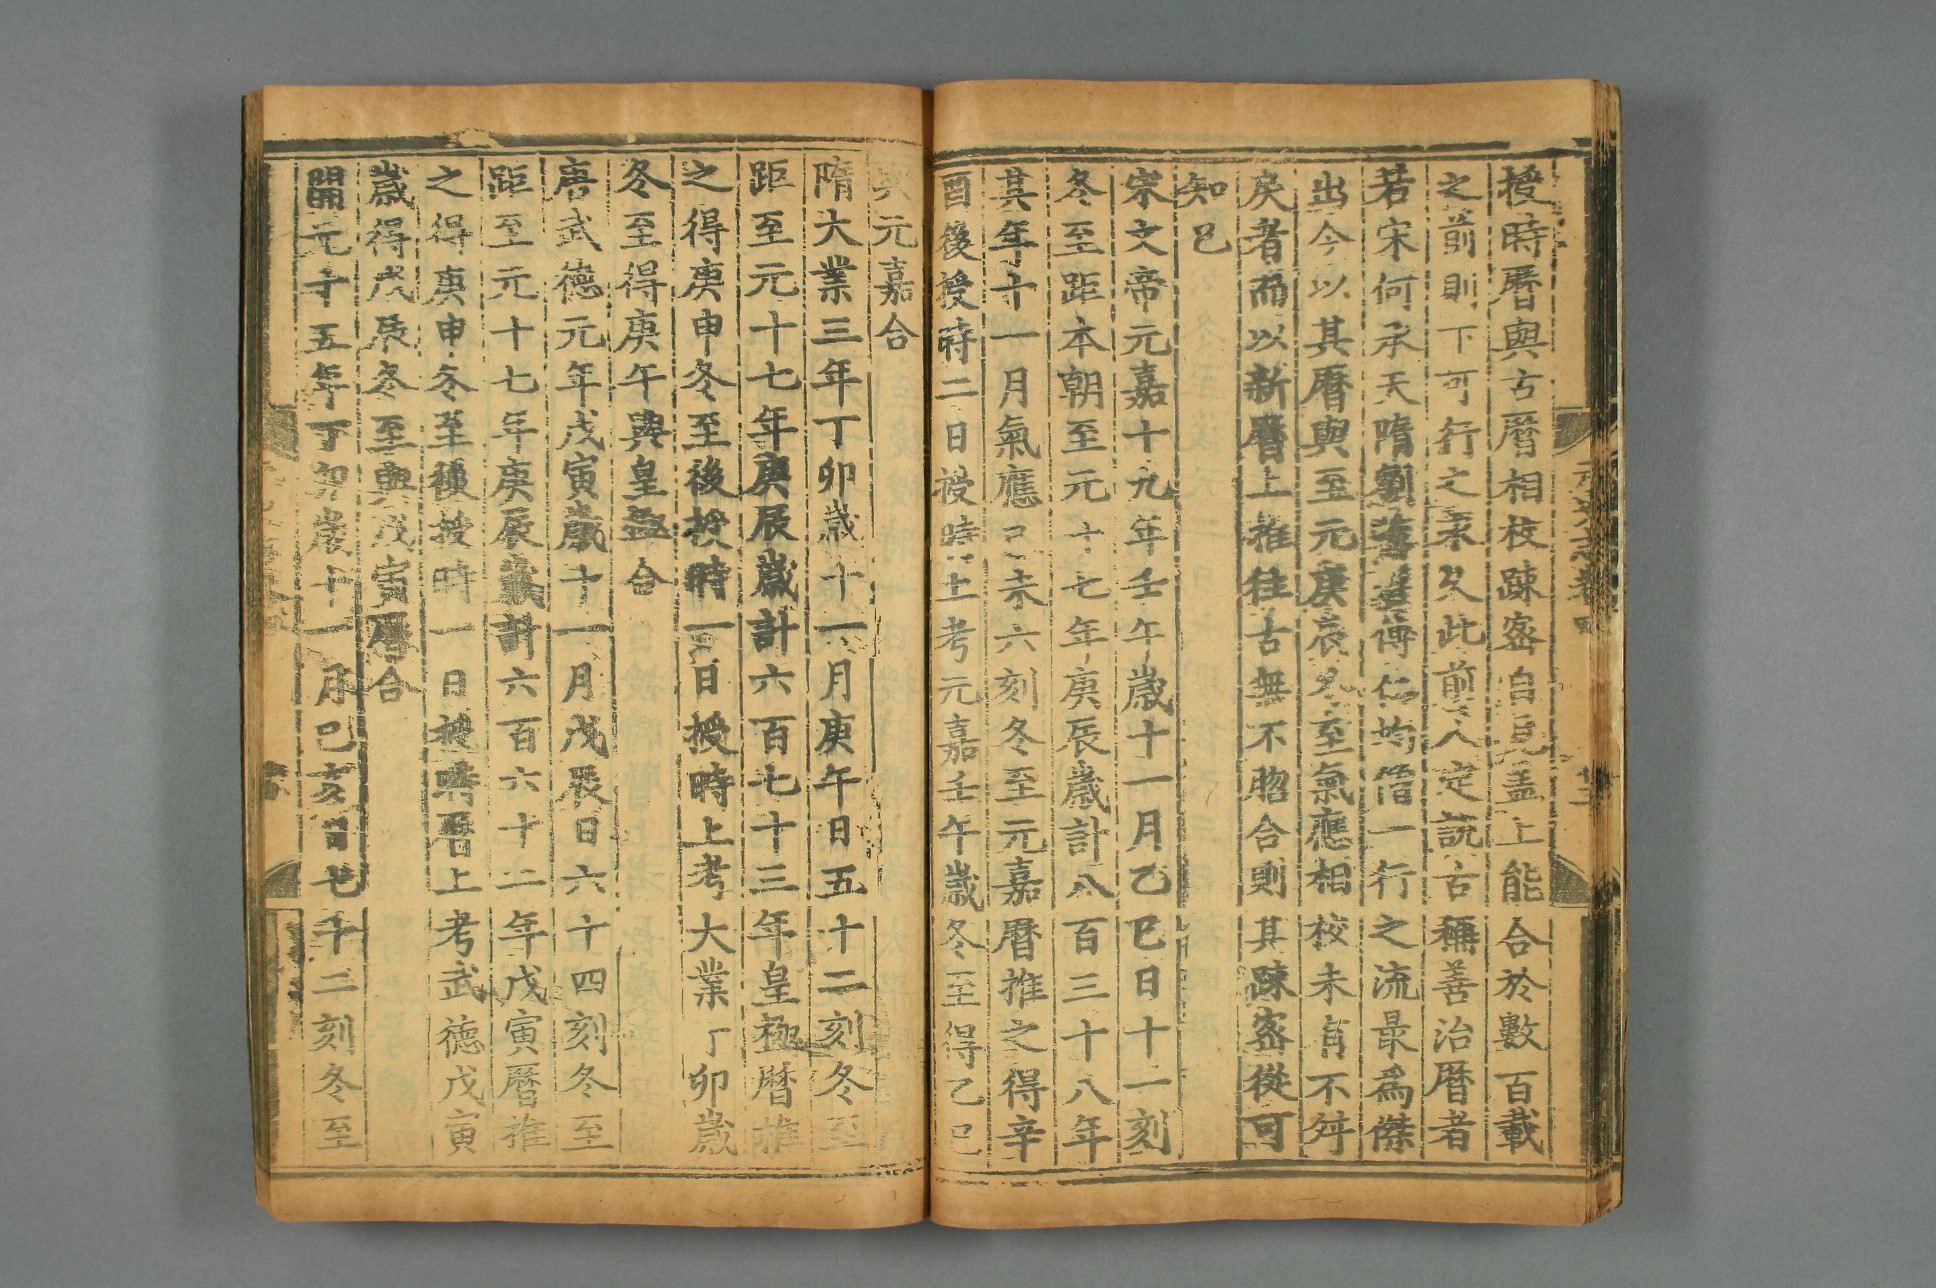 授時曆與古曆相校疎密自見盖上能合於數百載
之前則下可行之永久此前人定說古稱善治曆者
若宋何承天隋劉焯唐傅仁均僧一行之流最爲傑
出今以其曆與至元庚辰冬至氣應相校未有不舛
戾者而以新曆上推往古無不脗合則其疎密從可
知已
宋文帝元嘉十九年壬午歲十一月乙巳日十一刻
冬至距本朝至元十七年庚辰歲計八百三十八年
其年十一月氣應己未六刻冬至元嘉曆推之得辛
酉後授時二日授時上考元嘉壬午歲冬至得乙巳
與元嘉合
隋大業三年丁卯歲十一月庚午日五十二刻冬至
距至元十七年庚辰歲計六百七十三年皇極曆推
之得庚申冬至後授時一日授時上考大業丁卯歲
冬至得庚午與皇極合
唐武德元年戊寅歲十一月戊辰日六十四刻冬至
距至元十七年庚辰歲計六百六十二年戊寅曆推
之得庚申冬至後授時一日授時曆上考武德戊寅
歲得戊辰冬至與戊寅曆合
開元十五年丁卯歲十一月己亥日七十二刻冬至